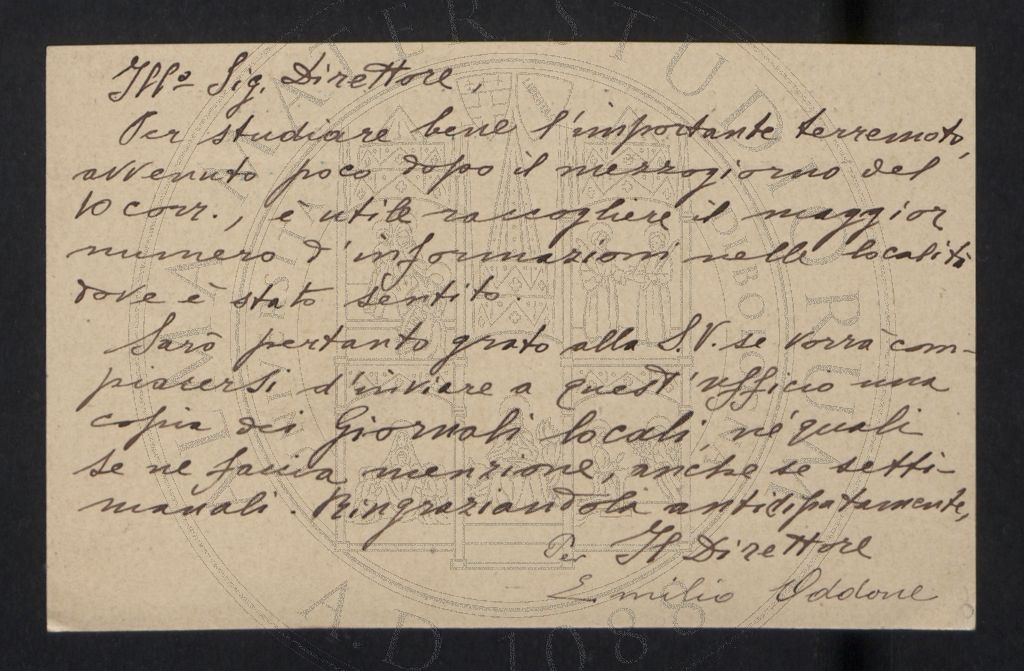 Ill.º Sig. Direttore,
Per studiare bene l'importante terremoto,
avvenuto poco dopo il mezzogiorno del
10 corr., è utile raccogliere il maggior
numero d'informazioni nelle località
dove è stato sentito.
Sarò pertanto grato alla S.V. se vorrà com-
piacersi d'inviare a quest'ufficio una
copia dei Giornali locali, ne' quali
se ne faccia menzione, anche se setti-
manali. Ringraziandola anticipatamente,
Per Il Direttore
Emilio Oddone
ALMA MATER STUDIORUM
A.D. 1088